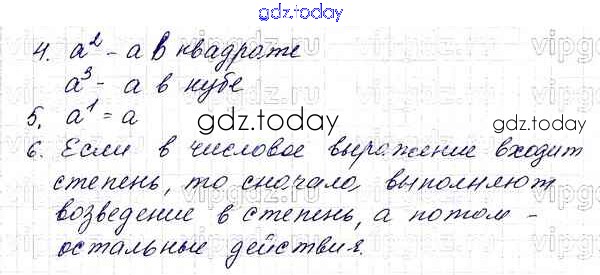 gdz.today
4. a² - а в квадрате
a³ - а в кубе
5. a¹ = a
gdz.today
gdz.today
6. Если в числовое выражение входит
степень, то сначала, выполняют
возведение в степень, а потом -
остальные действия.